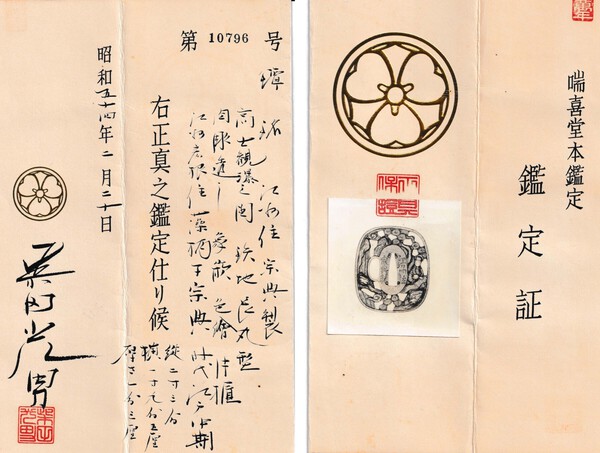 喘喜堂本鑑定
鑑定証
第 10796 号
鐔 銘 江州住宗典製
高士観瀑之図 鉄地 長丸型
肉彫透し 象嵌色絵 片櫃
江州彦根住 藻柄子宗典 時代江戸中期
縦二寸三分
横二寸一分五厘
右正真之鑑定仕り候
昭和五十四年二月二十日